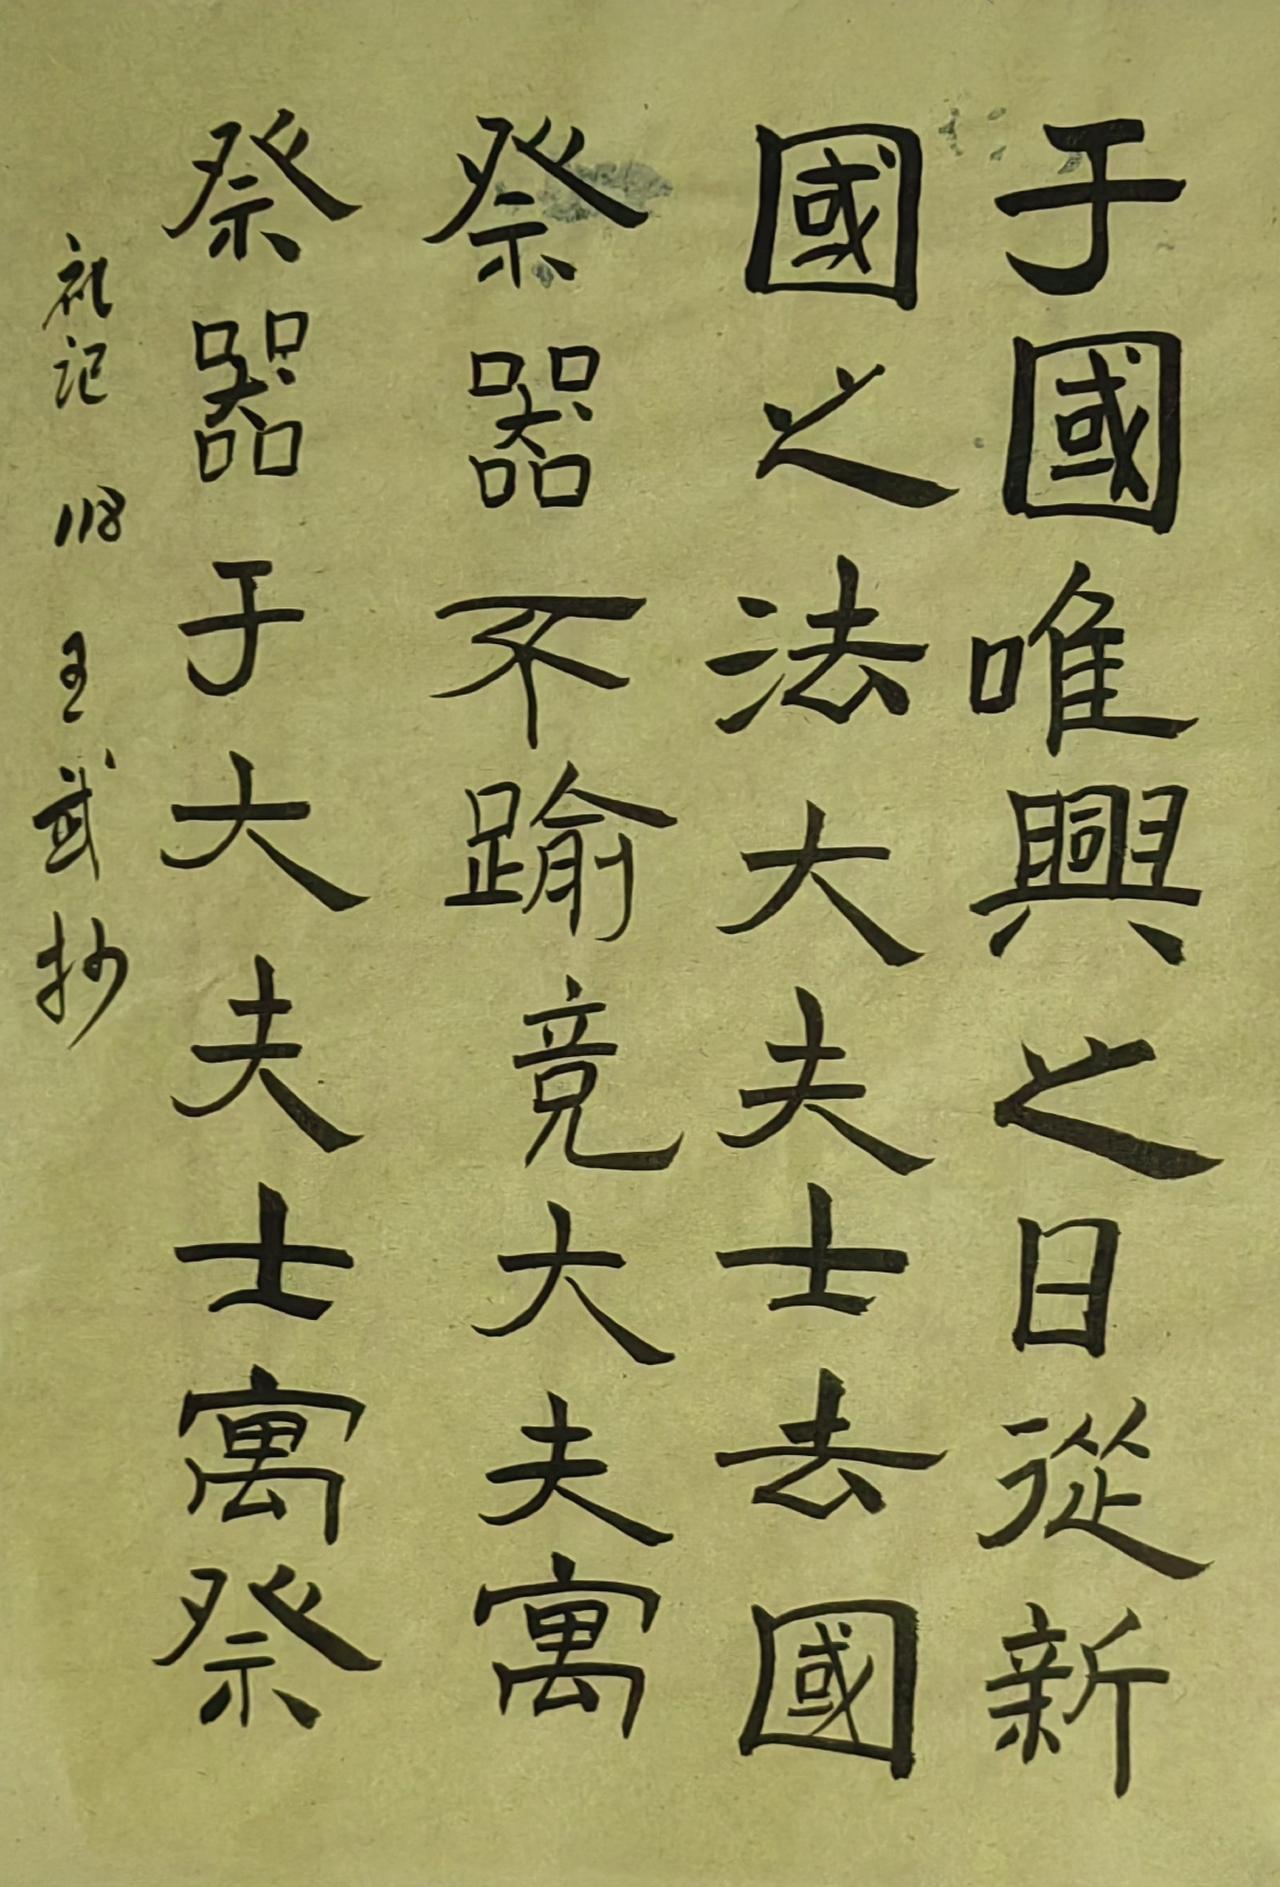 于國唯興之日從新
國之法大夫士去國
祭器不踰竟大夫寓
祭器于大夫士寓祭
礼记 118 王斌抄